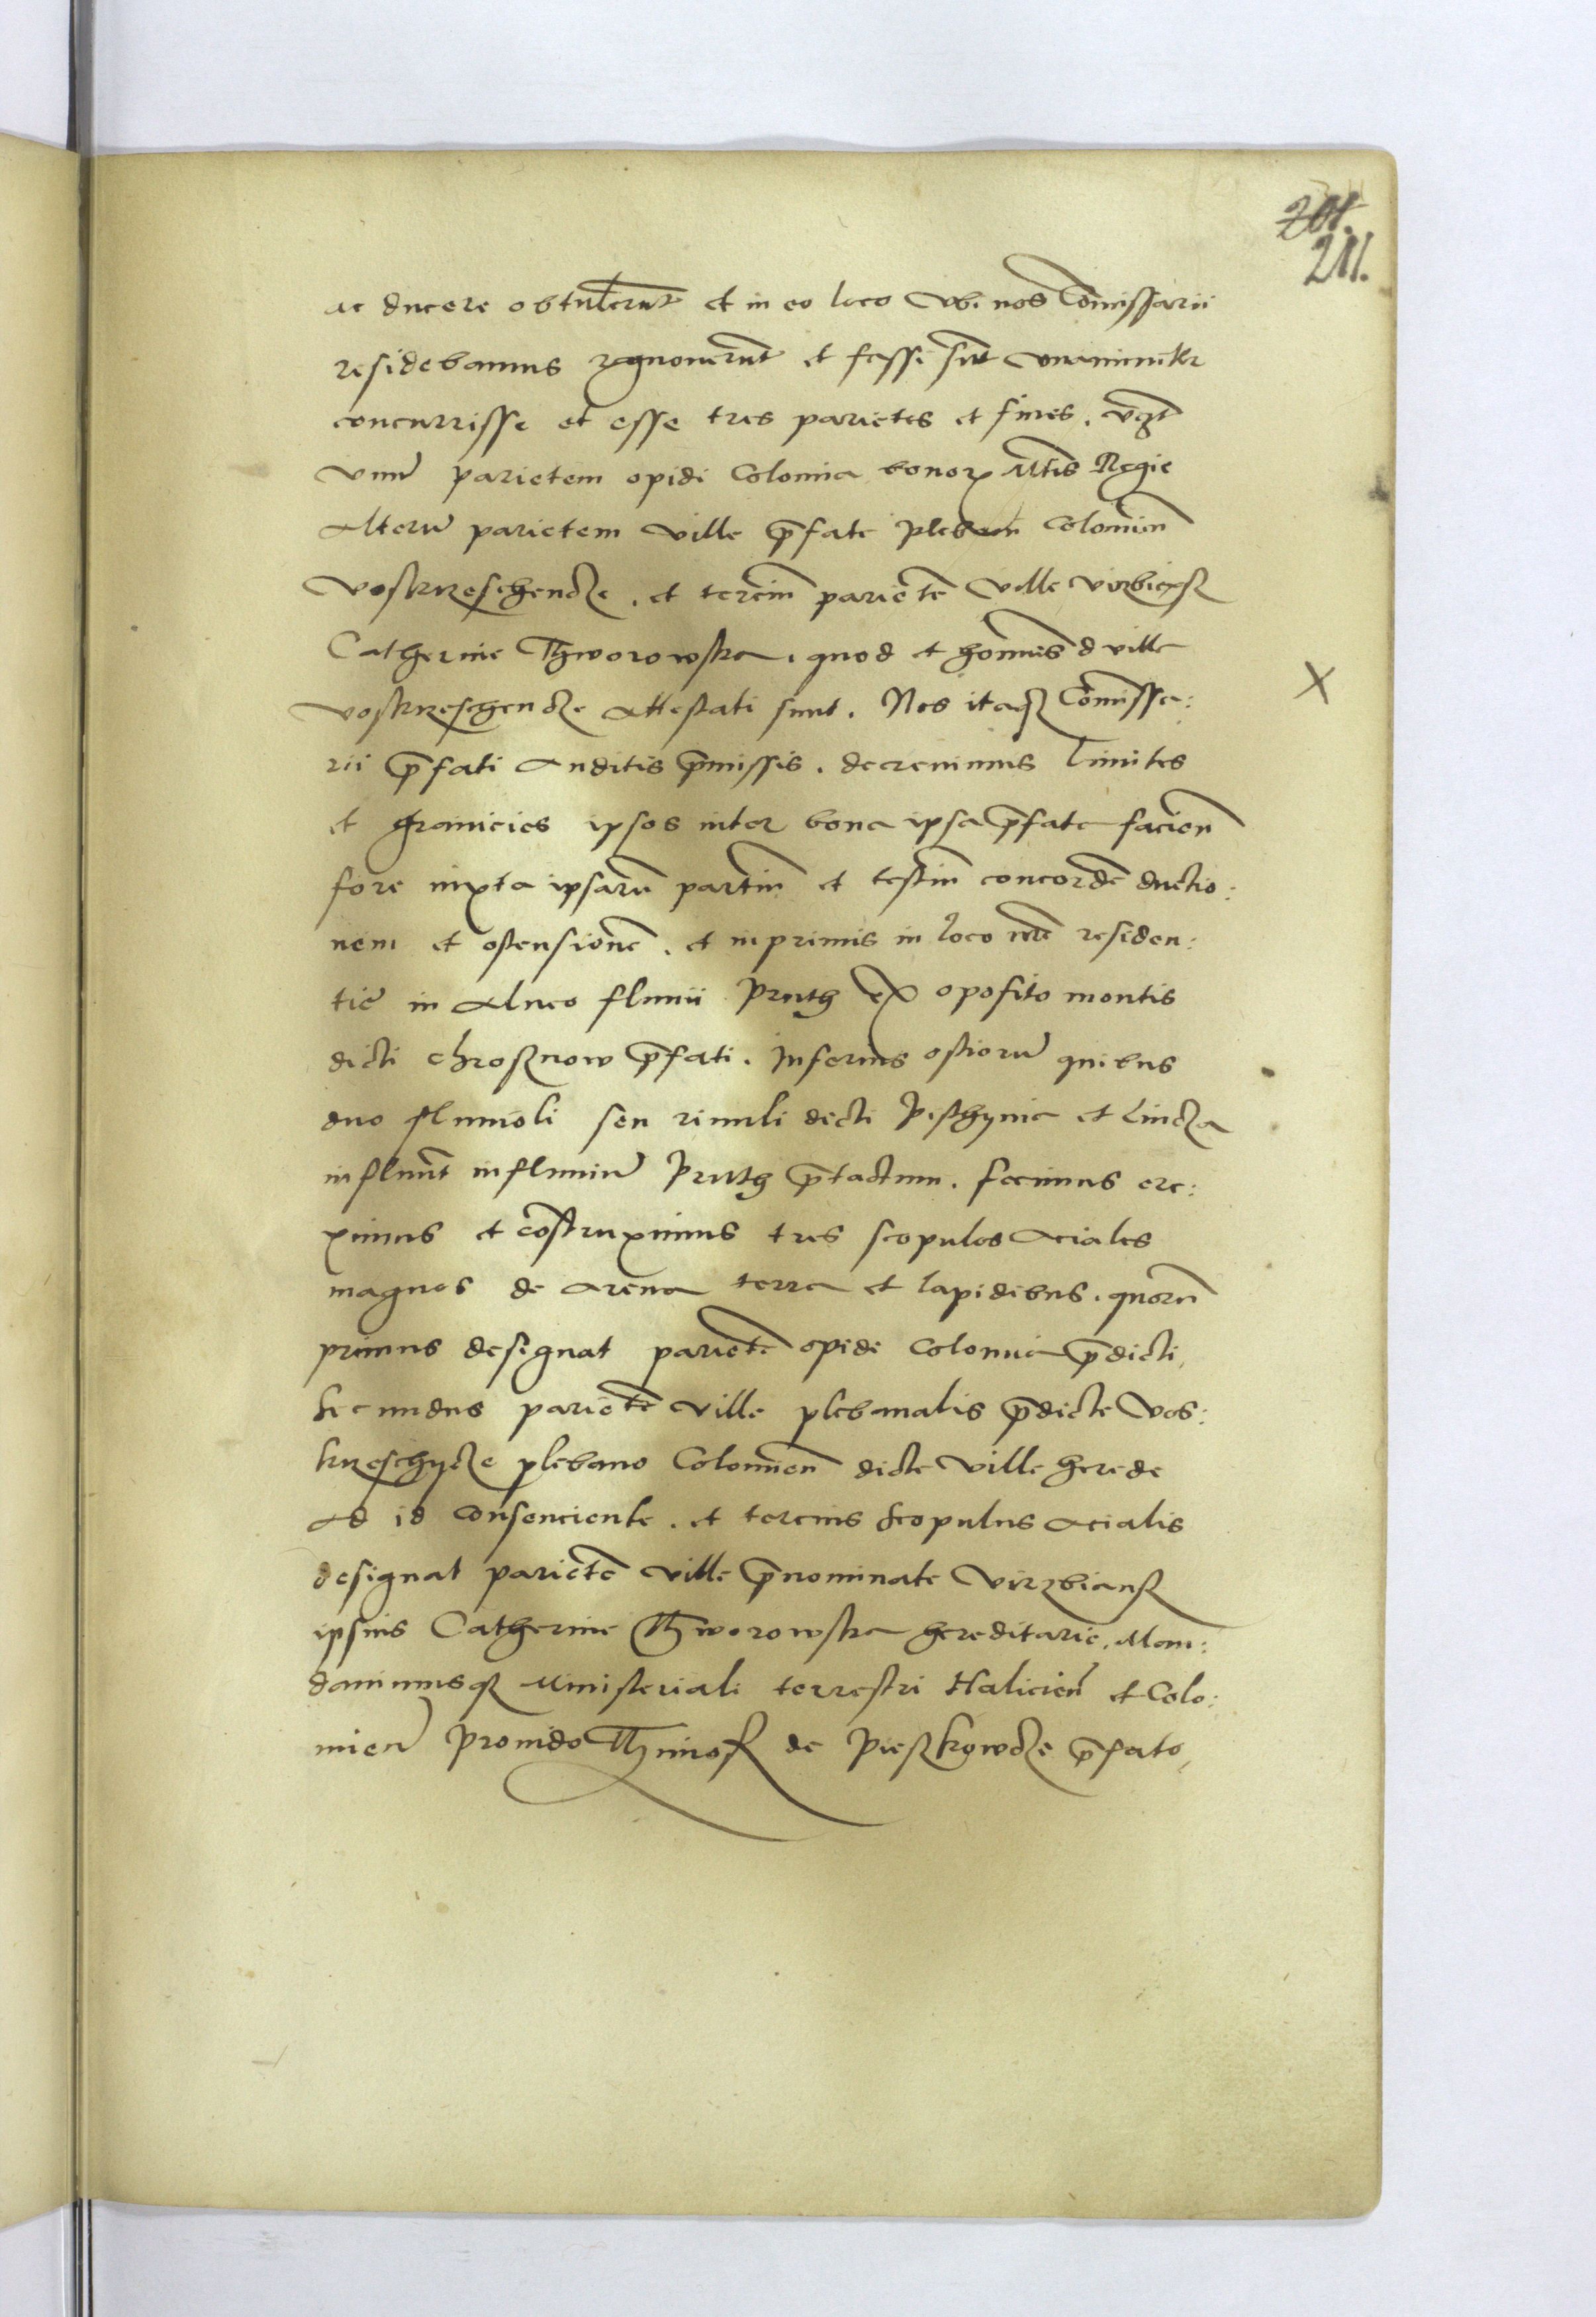 201.
211.
ac ducere obtulerūt et in eo loco vbi nos Com̄issarii
residebamus recognouerūt et fassi sūt vnanimiter
concurrisse et esse tres parietes et fines. vȝt
vnū parietem opidi Colomia bonoꝝ Mtis Regie
Alterū parietem ville p̄fate pleban̄ Colomien̄
voskrzeschencze. et terciū parietē ville virzbiąsz
Catherine Thworowska. quod et homines d ville
voskrzeschencze attestati sunt. Nos itaqȝ Com̄issa:
rii p̄fati Auditis p̄missis. decreuimus limites
et granicies ipsos inter bona ipsa p̄fata facien̄
fore iuxta ipsarū partiū et testiū concordē ductio:
nem et ostensionē. et inprimis in loco nr̄e residen:
tie in Alueo fluuii Pruth ex oposito montis
dicti Chrosznow p̄fati. Inferius ostiorū quibus
duo fluuioli seu riuuli dicti Pisthynia et Lincza
influūt in fluuiū Pruth p̄tactum. fecimus ere:
ximus et cōstruximus tres scopulos Aciales
magnos de Arena terra et lapidibus. quorū
primus designat parietē opidi Colomia p̄dicti,
Secundus parietē ville plebanalis p̄dicte Vos:
krzeschycze plebano Colomien̄ dicte ville herede
Ad id consenciente. et tercius Scopulus Acialis
designat parietē ville p̄nominate Virzbiansz
ipsius Catherine Thworowska hereditarie. Man:
dauimusqȝ Ministeriali terrestri Halicien̄ et Colo:
mien̄ Prouido Thimosz de Pieszkowcze p̄fato,
X